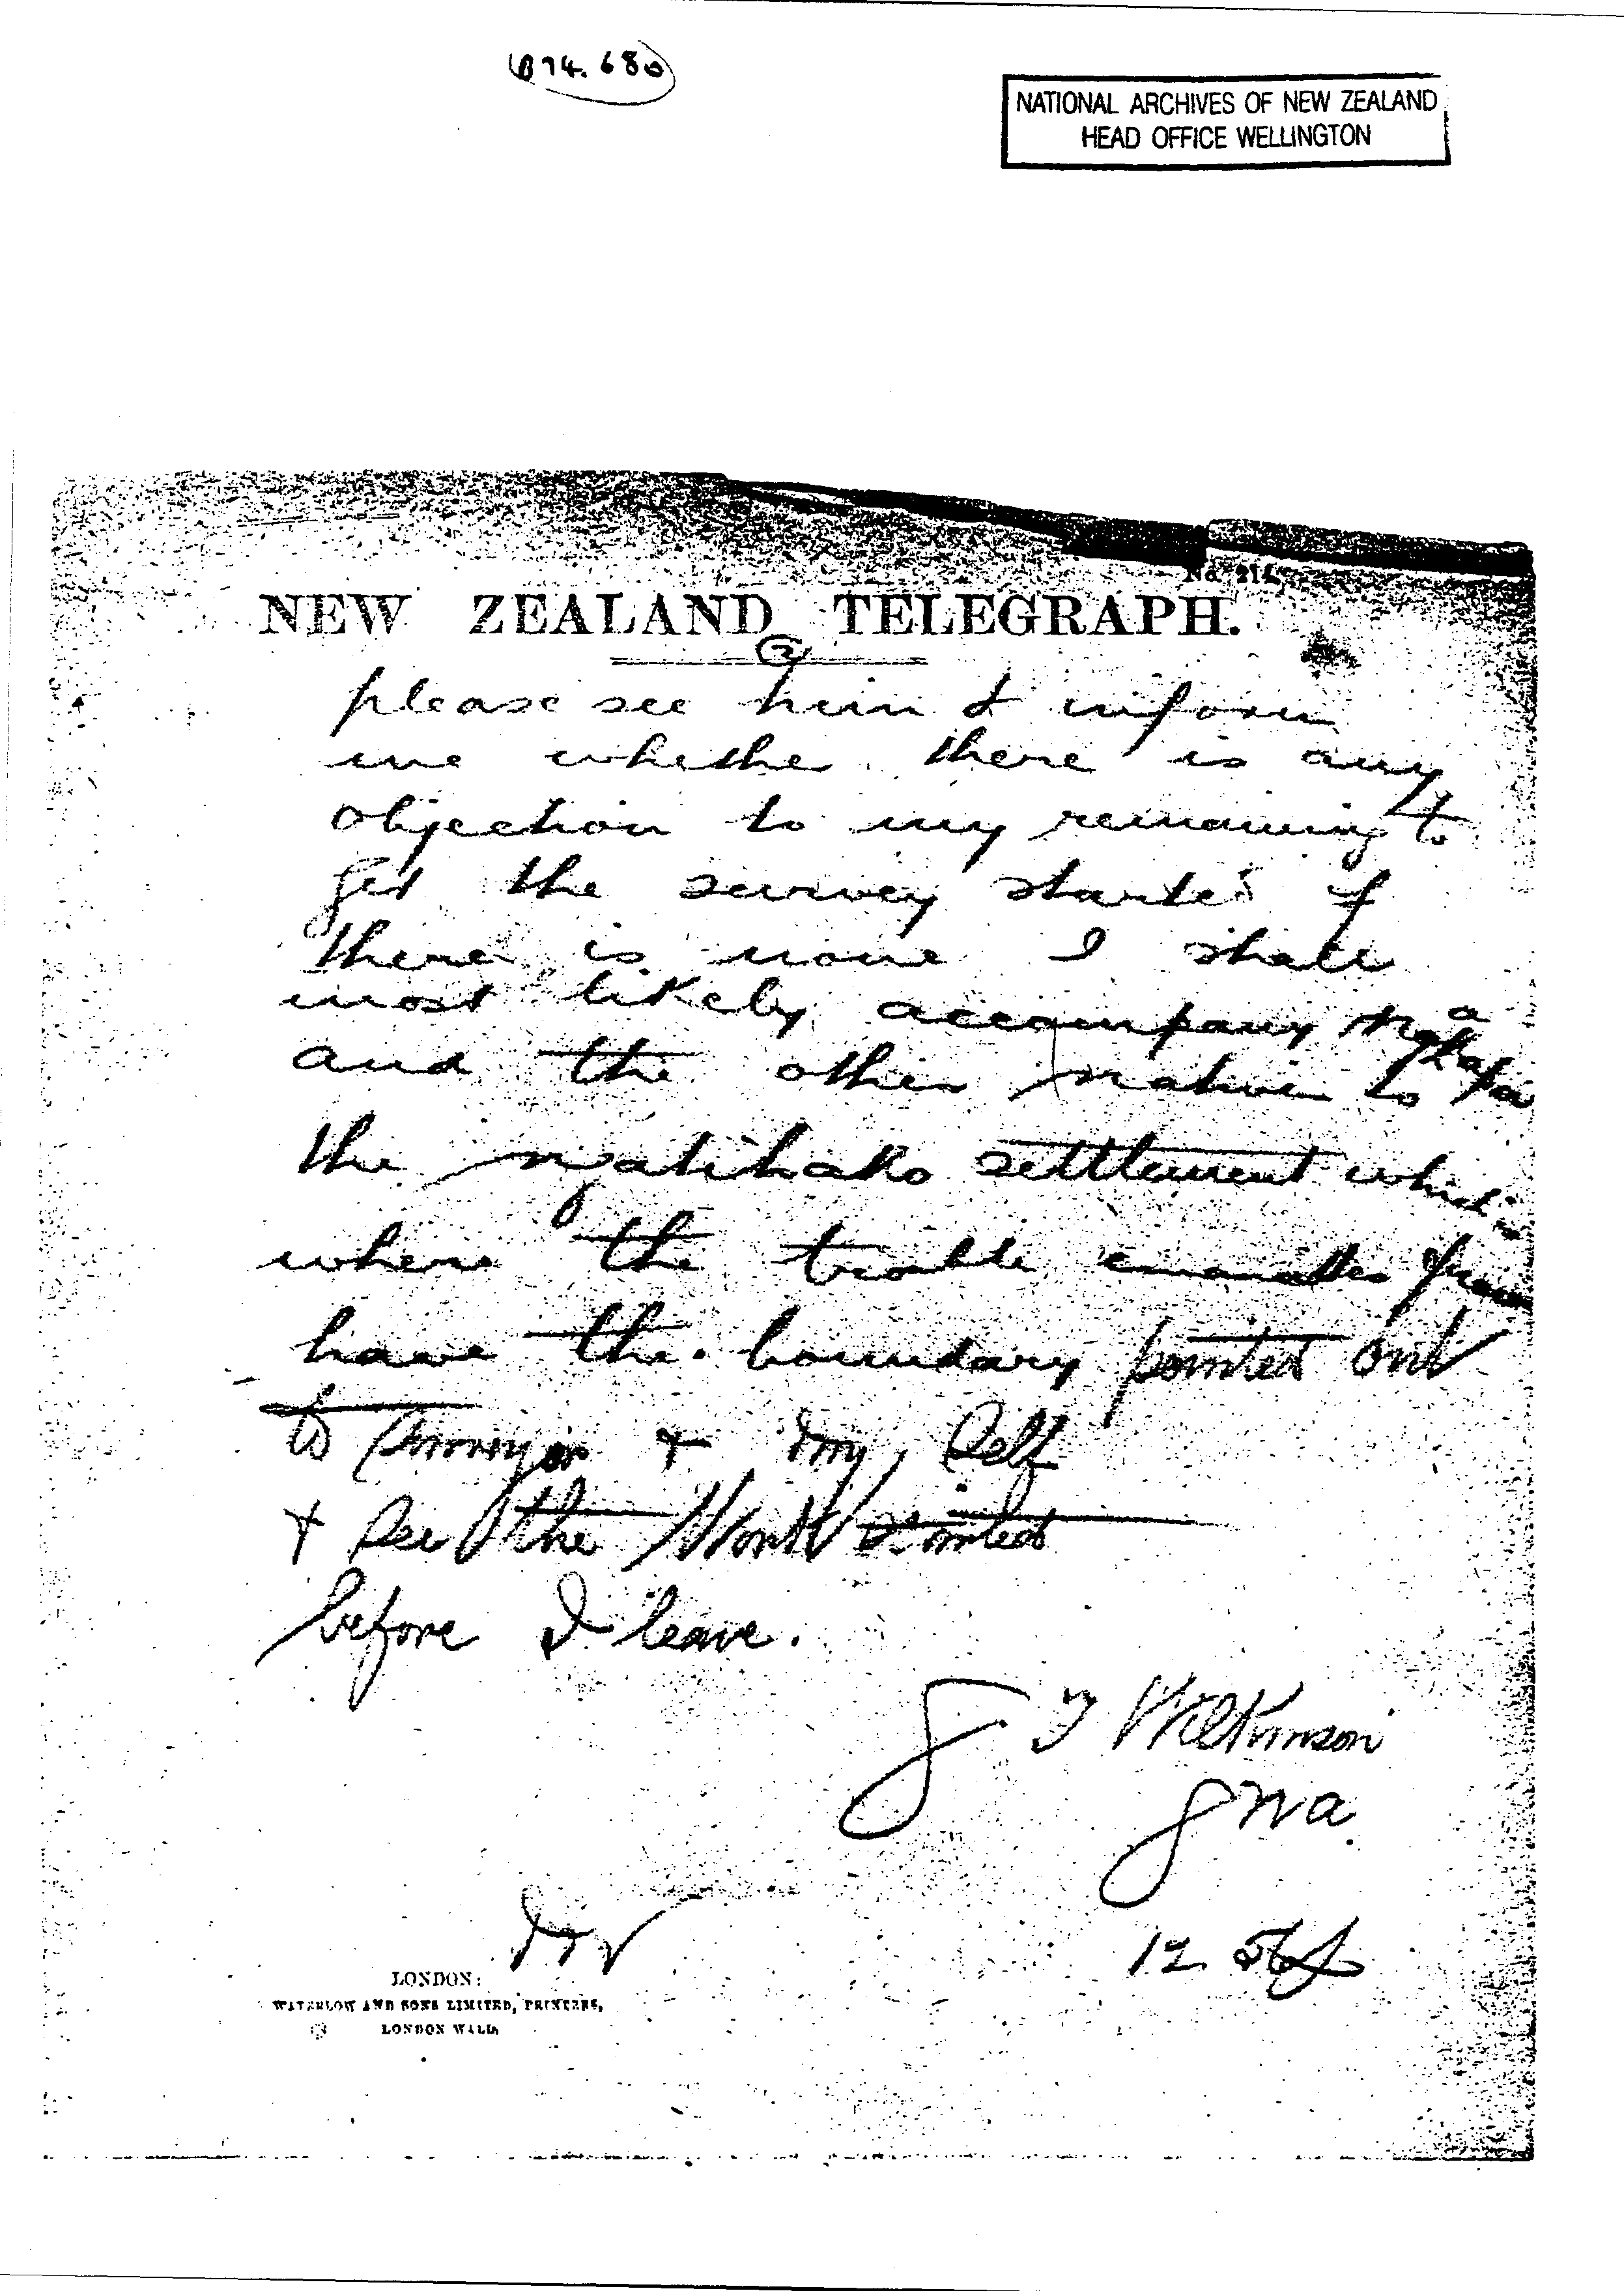 674.680
NATIONAL ARCHIVES OF NEW ZEALAND
HEAD OFFICE WELLINGTON
No. 214
NEW ZEALAND TELEGRAPH.
2
please see him & inform
me whethe there is any
objection to my remaining to
get the survey started if
there is none I shall
most likely accompany
and the other natives to
the ngatihako settlement which
where the trouble emanates from
have the boundary pointed out
to Surveyor & my Self
& See the Work started
before I leave.
G T Wilkinson
LONDON:
WATERLOW AND SONS LIMITED, PRINTERS,
LONDON WALL